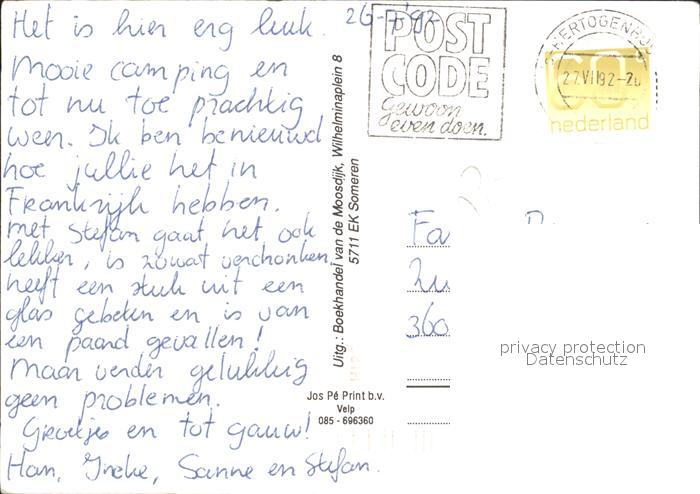 26-7-'92
Het is hier erg leuk.
Mooie camping en
tot nu toe prachtig
weer. Ik ben benieuwd
hoe jullie het in
Frankrijk hebben.
Met Stefan gaat het ook
lekker, is zowat verdronken,
heeft een stuk uit een
glas gebeten en is van
een paard gevallen!
Maar verder gelukkig
geen problemen.
Groetjes en tot gauw!
Han, Ineke, Sanne en Stefan.
Uitg.: Boekhandel van de Moosdijk, Wilhelminaplein 8
5711 EK Someren
Jos Pé Print b.v.
Velp
085 - 696360
POST
CODE
Gewoon
even doen.
'S HERTOGENBO
27 VII 92-20
nederland
Fa
Zu
360
privacy protection
Datenschutz